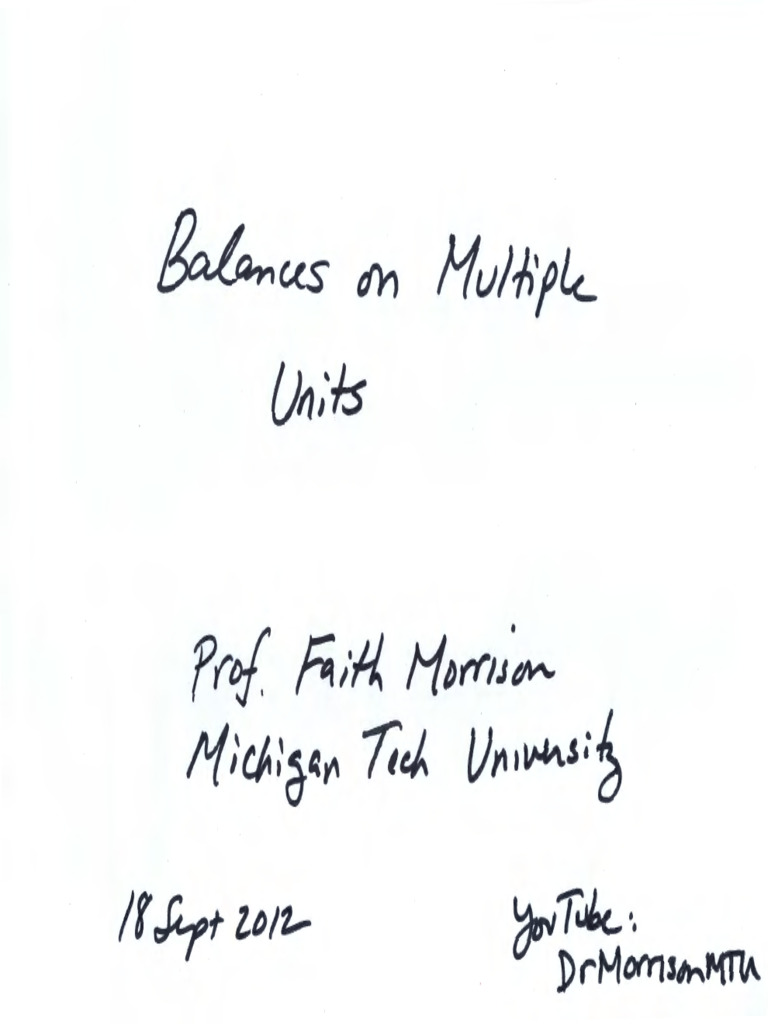 Balances on Multiple
Units
Prof. Faith Morrison
Michigan Tech University
18 Sept 2012
YouTube:
DrMorrisonMTU